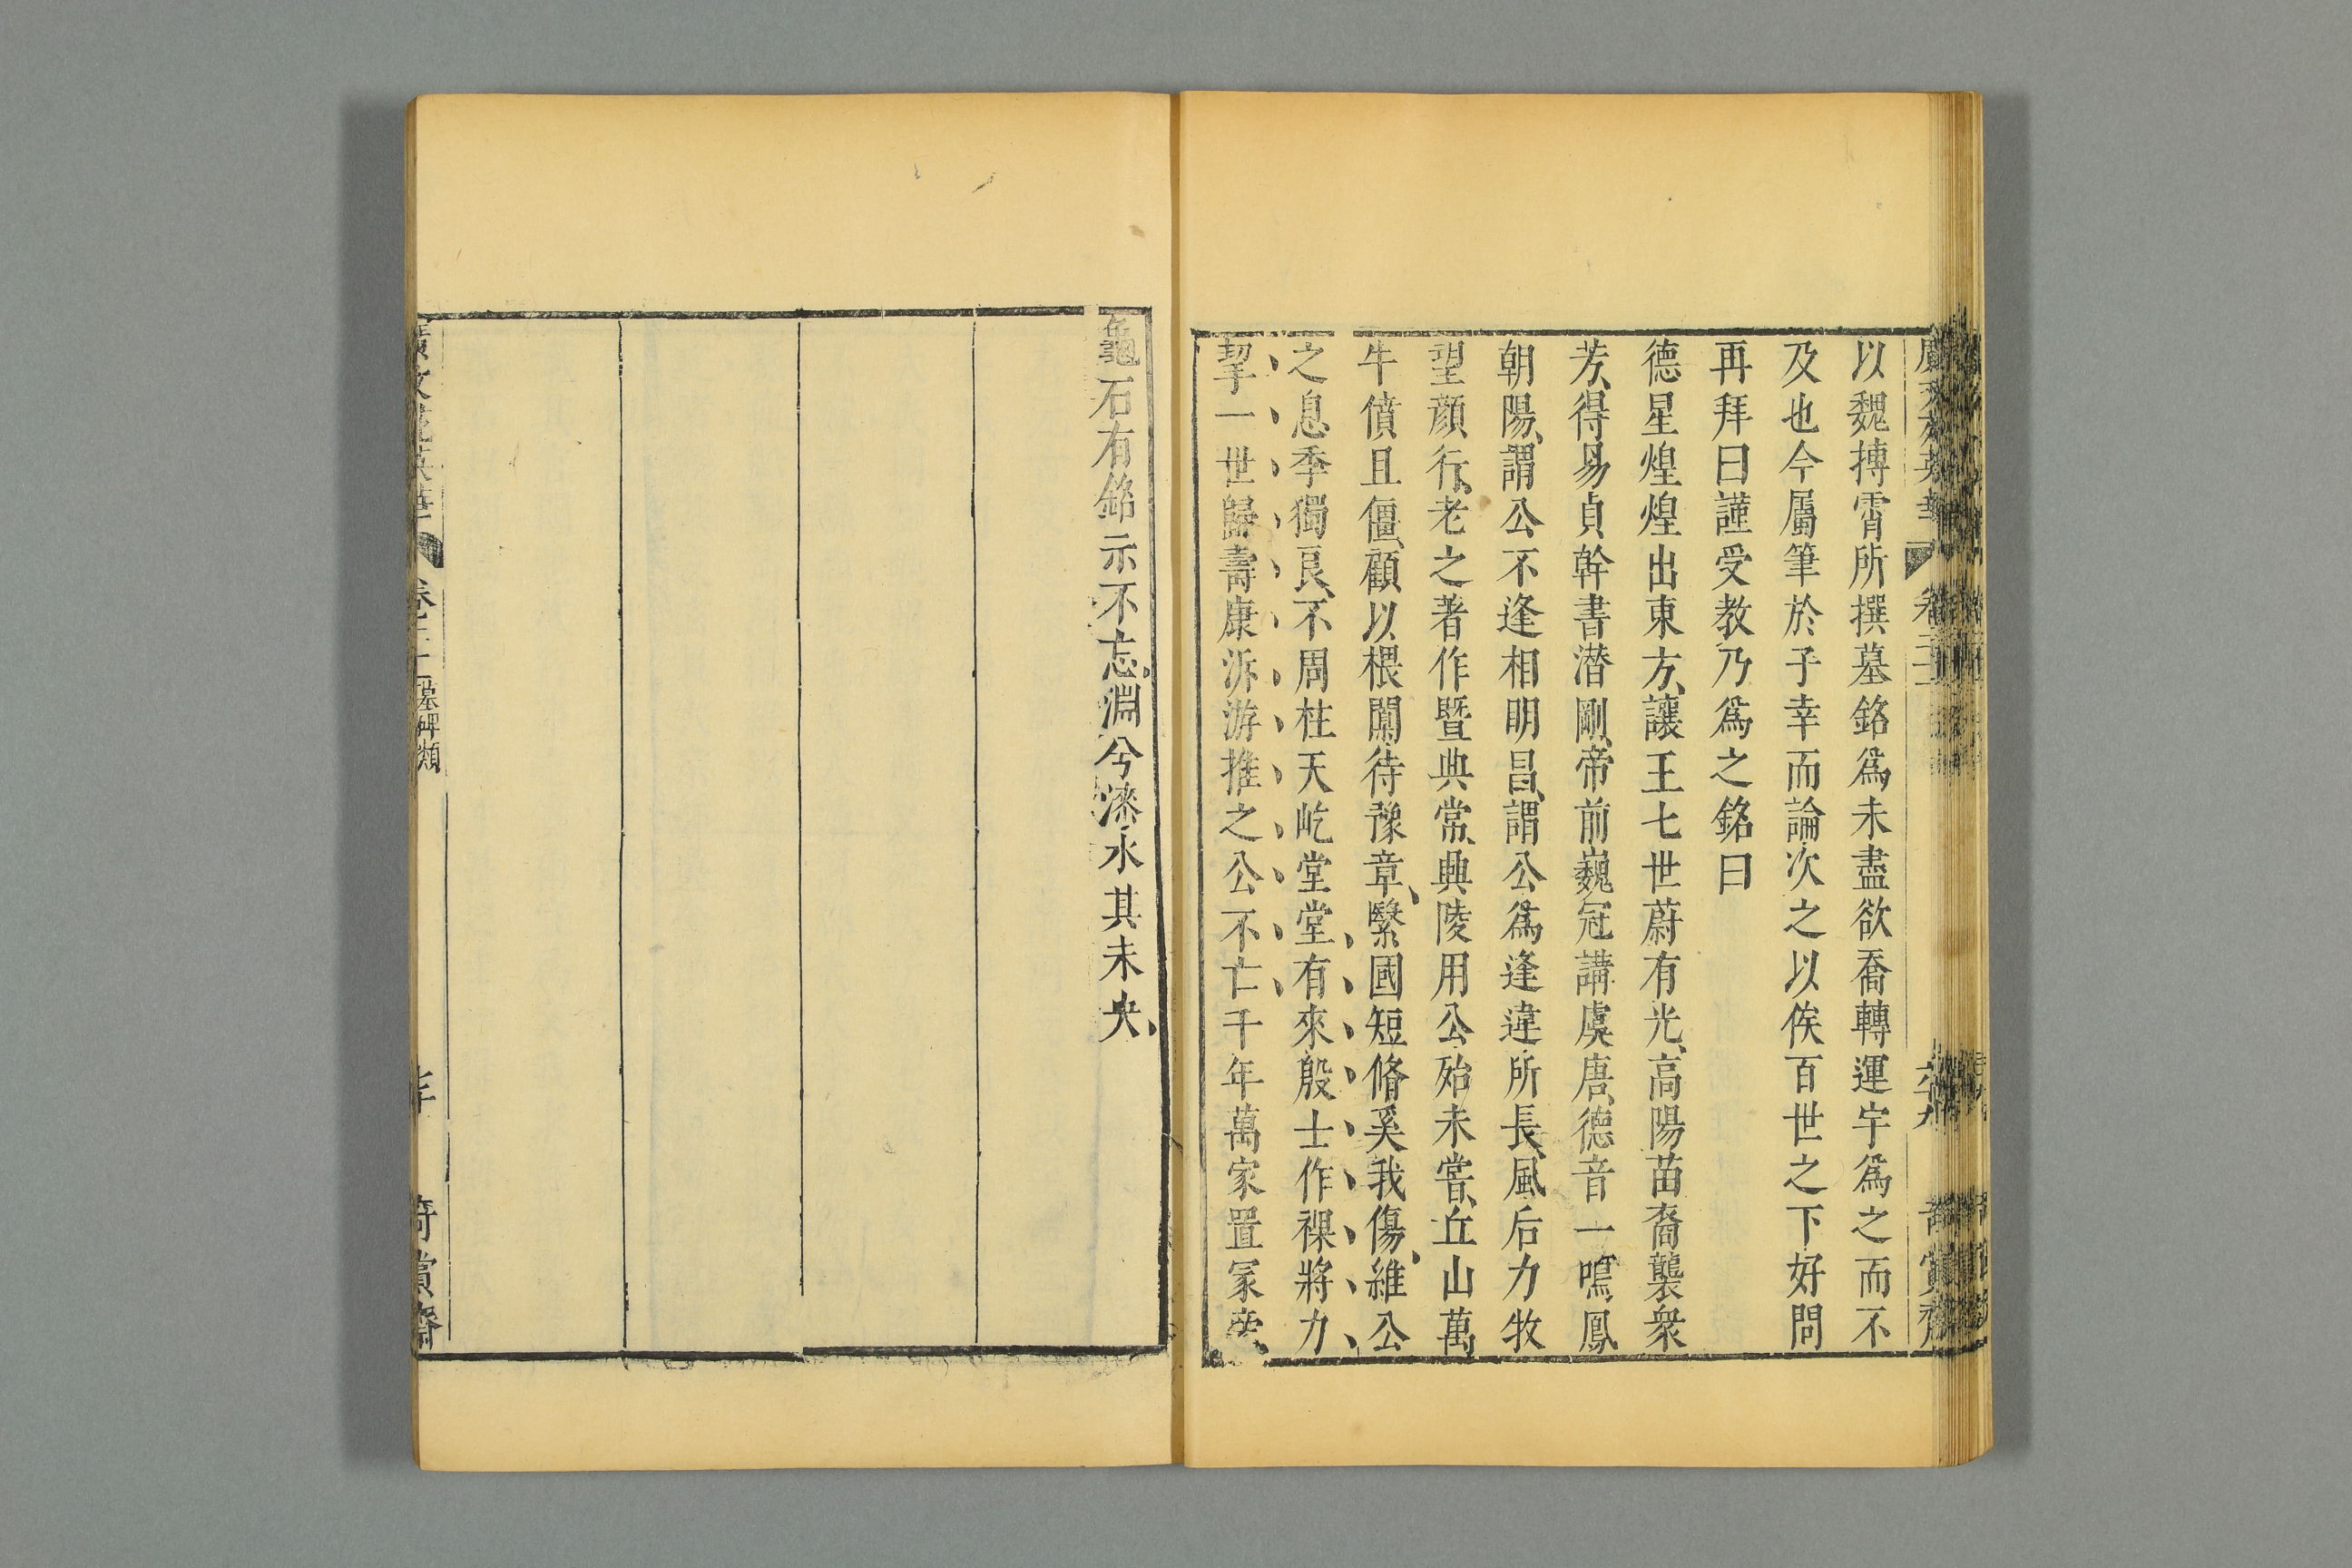 以魏摶霄所撰墓銘爲未盡欲喬轉運宇爲之而不
及也今屬筆於予幸而論次之以俟百世之下好問
再拜曰謹受教乃爲之銘曰
德星煌煌出東方讓王七世蔚有光高陽苗裔襲衆
芳得易貞幹書潜剛帝前巍冠講虞唐德音一鳴鳳
朝陽謂公不逢相明昌謂公爲逢違所長風后力牧
望顔行老之著作暨典常興陵用公殆未嘗丘山萬
牛僨且僵顧以椳闑待豫章繄國短脩奚我傷維公
之息季獨良不周柱天屹堂堂有來殷士作祼將力
挈一世歸壽康泝游推之公不亡千年萬家置冡旁
龜石有銘示不忘淵兮漆水其未央
卷二十 墓碑類
奇賞齋